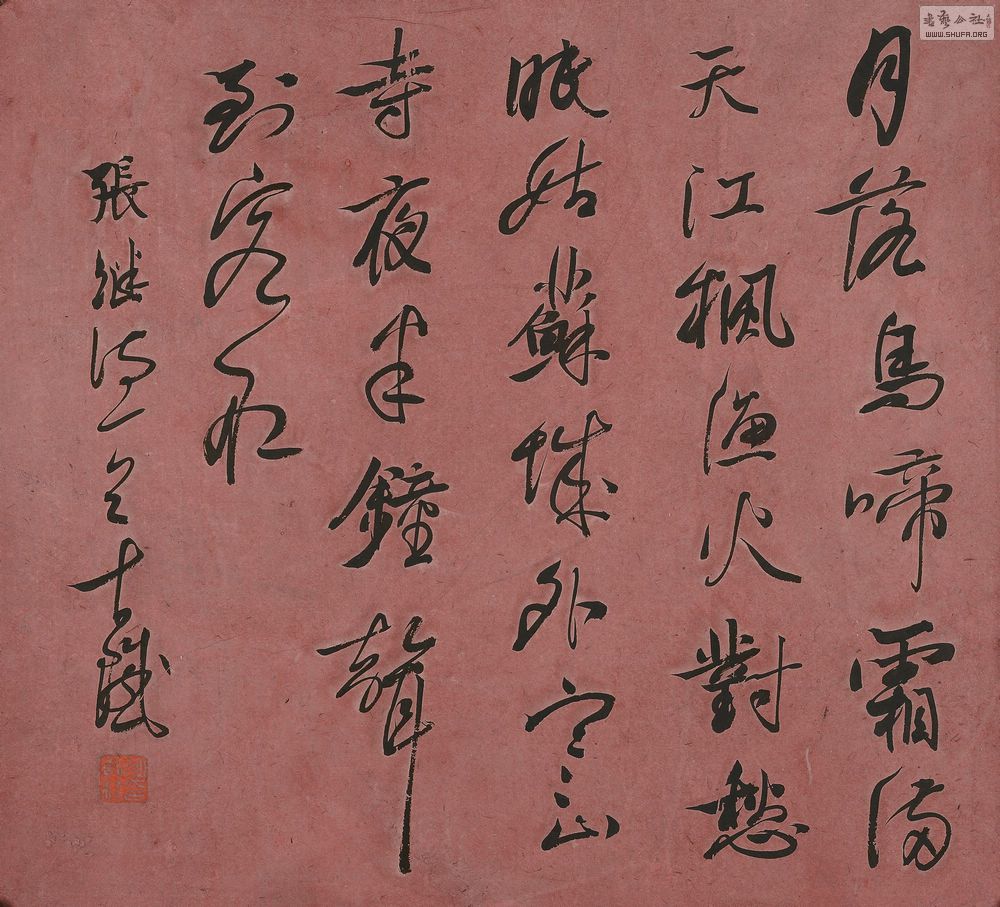 月落烏啼霜滿
天江楓漁火對愁
眠姑蘇城外寒山
寺夜半鐘聲
到客船
張继詩一首
書藝公社
WWW.SHUFA.ORG